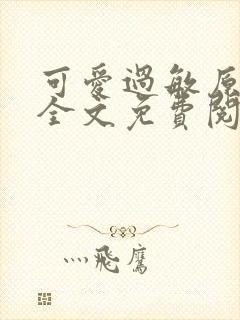 可愛過敏原
全文免費閱
灬飛鷹